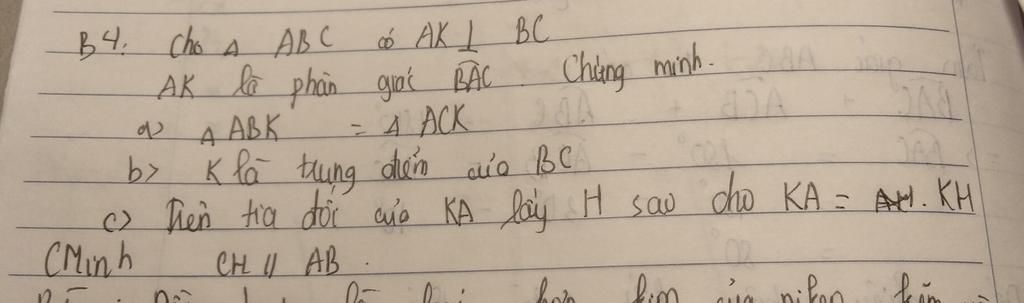 B4: Cho Δ ABC có AK ⊥ BC
AK là phân giác BAC. Chứng minh.
a> Δ ABK = Δ ACK
b> K là trung điểm của BC
c> Trên tia đối của KA lấy H sao cho KA = KH
CMinh CH // AB.